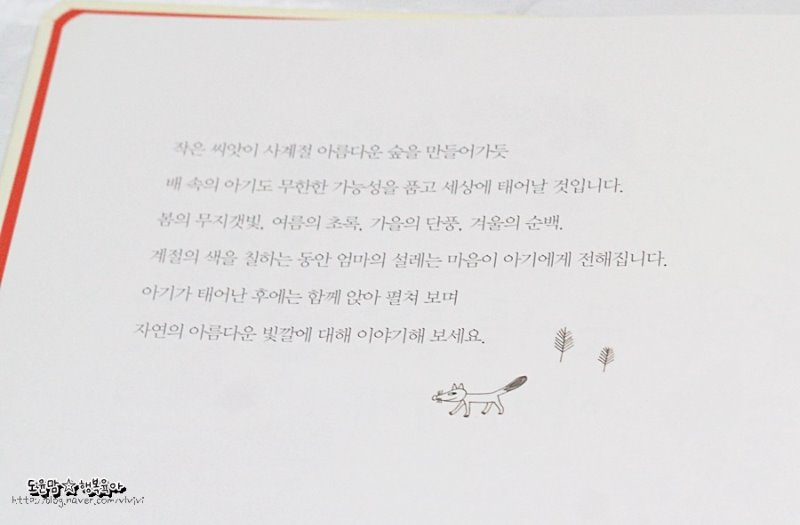 작은 씨앗이 사계절 아름다운 숲을 만들어가듯
배 속의 아기도 무한한 가능성을 품고 세상에 태어날 것입니다.
봄의 무지갯빛, 여름의 초록, 가을의 단풍, 겨울의 순백.
계절의 색을 칠하는 동안 엄마의 설레는 마음이 아기에게 전해집니다.
아기가 태어난 후에는 함께 앉아 펼쳐 보며
자연의 아름다운 빛깔에 대해 이야기해 보세요.
도윤맘☆행복육아
http://blog.naver.com/vlvivi